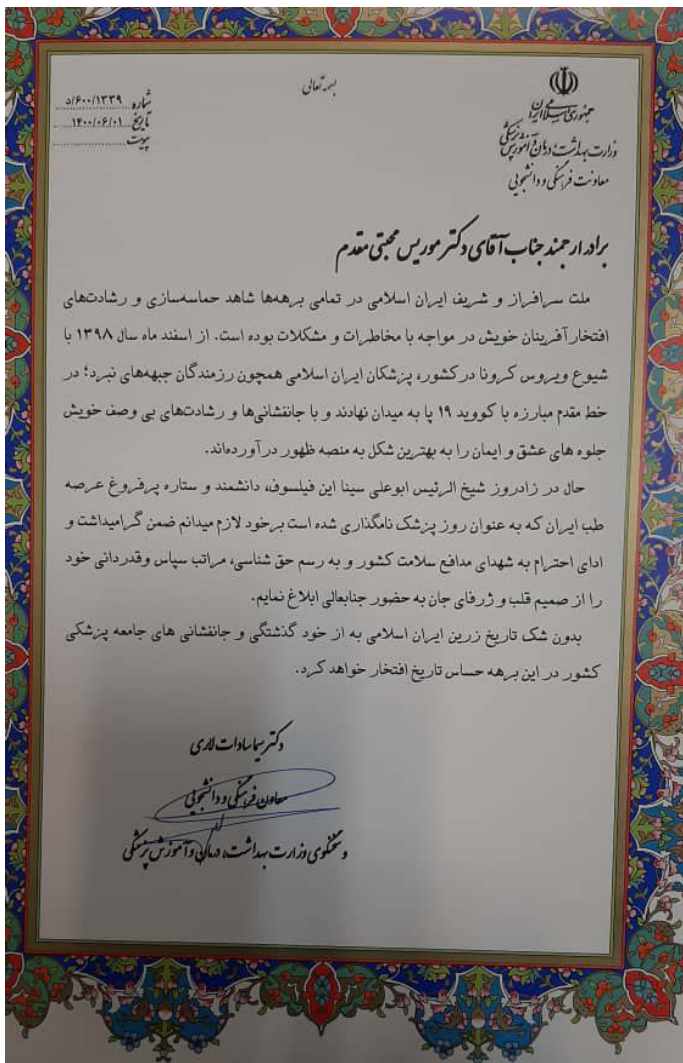 بسمه تعالی
جمهوری اسلامی ایران
وزارت بهداشت، درمان و آموزش پزشکی
معاونت فرهنگی و دانشجویی
شماره ۶۰۰/۱۳۳۹/د
تاریخ ۱۴۰۰/۰۶/۰۱
پیوست
برادر ارجمند جناب آقای دکتر موریس محبتی مقدم
ملت سرافراز و شریف ایران اسلامی در تمامی برهه‌ها شاهد حماسه‌سازی و رشادت‌های
افتخارآفرینان خویش در مواجه با مخاطرات و مشکلات بوده است. از اسفند ماه سال ۱۳۹۸ با
شیوع ویروس کرونا در کشور، پزشکان ایران اسلامی همچون رزمندگان جبهه‌های نبرد؛ در
خط مقدم مبارزه با کووید ۱۹ پا به میدان نهادند و با جانفشانی‌ها و رشادت‌های بی وصف خویش
جلوه های عشق و ایمان را به بهترین شکل به منصه ظهور درآورده‌اند.
حال در زادروز شیخ الرئیس ابوعلی سینا این فیلسوف، دانشمند و ستاره پرفروغ عرصه
طب ایران که به عنوان روز پزشک نامگذاری شده است برخود لازم میدانم ضمن گرامیداشت و
ادای احترام به شهدای مدافع سلامت کشور و به رسم حق شناسی، مراتب سپاس وقدردانی خود
را از صمیم قلب و ژرفای جان به حضور جنابعالی ابلاغ نمایم.
بدون شک تاریخ زرین ایران اسلامی به از خود گذشتگی و جانفشانی های جامعه پزشکی
کشور در این برهه حساس تاریخ افتخار خواهد کرد.
دکتر سیما سادات لاری
معاون فرهنگی و دانشجویی
و سخنگوی وزارت بهداشت، درمان و آموزش پزشکی